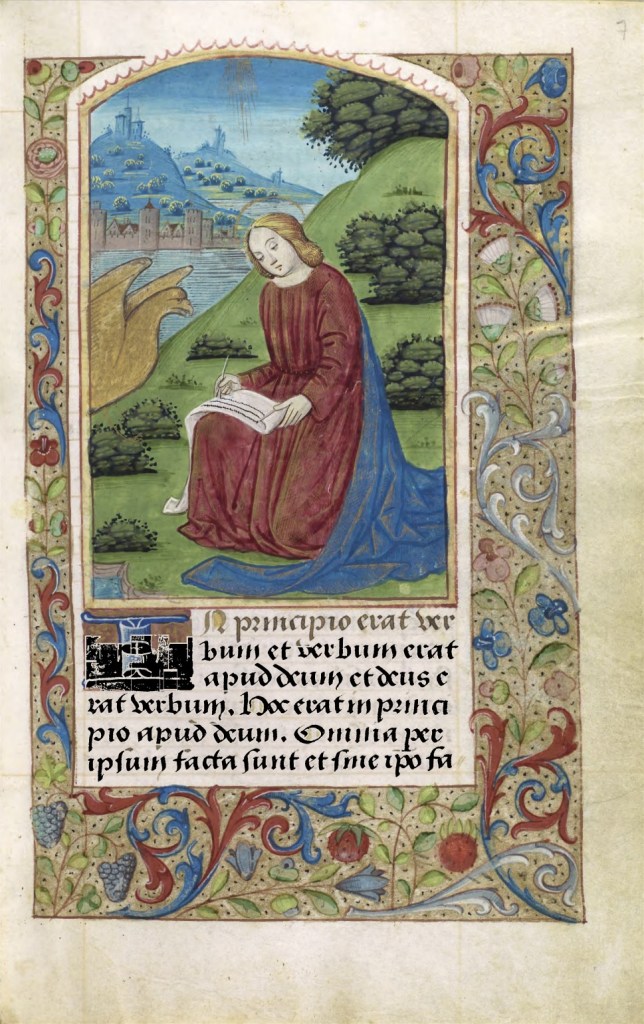 7
IN principio erat ver
bum et verbum erat
apud deum et deus e
rat verbum. Hoc erat in princi
pio apud deum. Omnia per
ipsum facta sunt et sine ip̄o fa